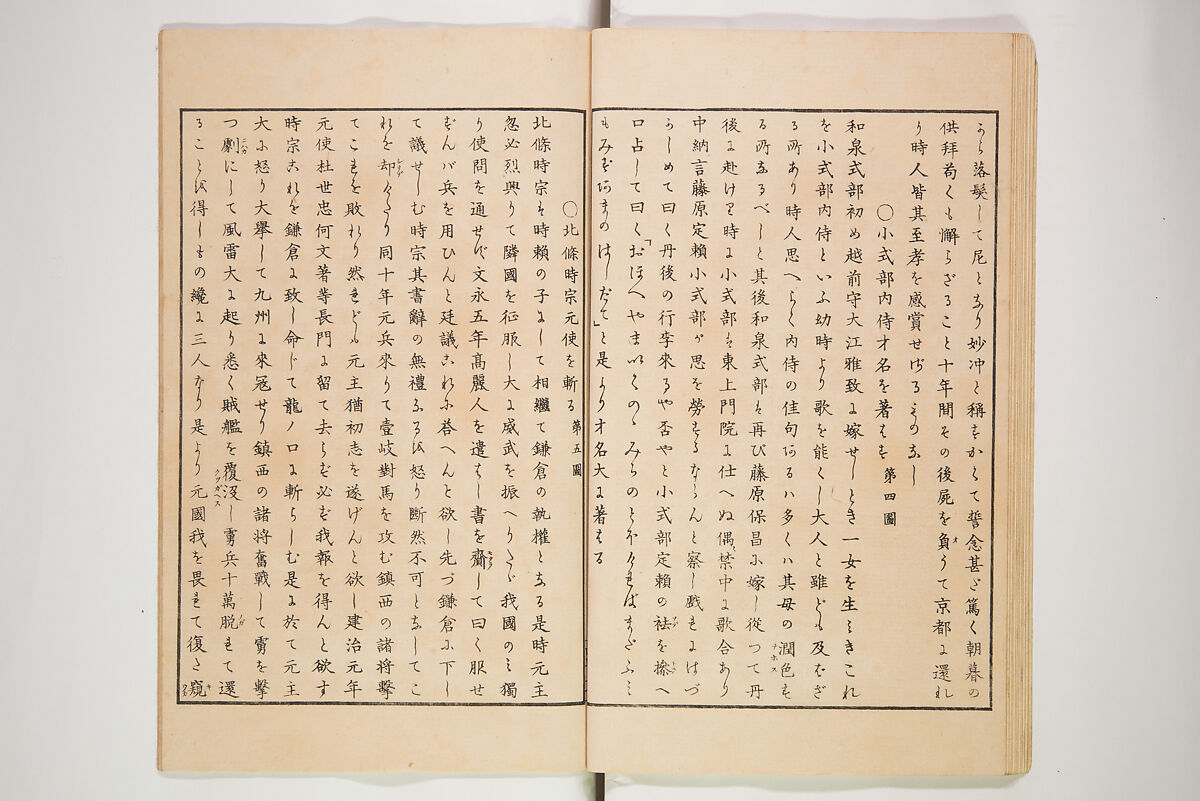 から落髮して尼となり妙冲と稱をかくて誓念甚ざ篤く朝暮の
供拜苟くも懈らざること十年間その後屍を負うて京都に還れ
り時人皆其至孝を感賞せざるものなし
〇小式部内侍才名を著はす 第四圖
和泉式部初め越前守大江雅致に嫁せしとき一女を生みきこれ
を小式部内侍といふ幼時より歌を能くし大人と雖ども及ばざ
る所あり時人思へらく内侍の佳句あるハ多くハ其母の潤色す
る所なるべしと其後和泉式部は再び藤原保昌に嫁し從つて丹
後に赴けり時に小式部は東上門院に仕へぬ偶禁中に歌合あり
中納言藤原定賴小式部が思を勞するならんと察し戲れにはづ
かしめて曰く丹後の行李來るや否やと小式部定賴の袪を捺へ
口占して曰く「おほへやまいくのゝみちのとほければまだふミ
もみずあまのはしだて」と是より才名大に著はる
〇北條時宗元使を斬る 第五圖
北條時宗は時賴の子にして相繼て鎌倉の執權となる是時元主
忽必烈興りて隣國を征服し大に威武を振へりたゞ我國のミ獨
り使問を通せず文永五年高麗人を遣はし書を齎して曰く服せ
ずんバ兵を用ひんと廷議これに答へんと欲し先づ鎌倉に下し
て議せしむ時宗其書辭の無禮なるを怒り斷然不可となしてこ
れを却けたり同十年元兵來りて壹岐對馬を攻む鎮西の諸將擊
てこれを敗れり然れども元主猶初志を遂げんと欲し建治元年
元使杜世忠何文著等長門に留て去らず必ず我報を得んと欲す
時宗これを鎌倉に致し命じて龍ノ口に斬らしむ是に於て元主
大に怒り大擧して九州に來冦せり鎮西の諸將奮戰して虜を擊
つ劇にして風雷大に起り悉く賊艦を覆沒し虜兵十萬脫れて還
ることを得しもの纔に三人なり是より元國我を畏れて復た窺